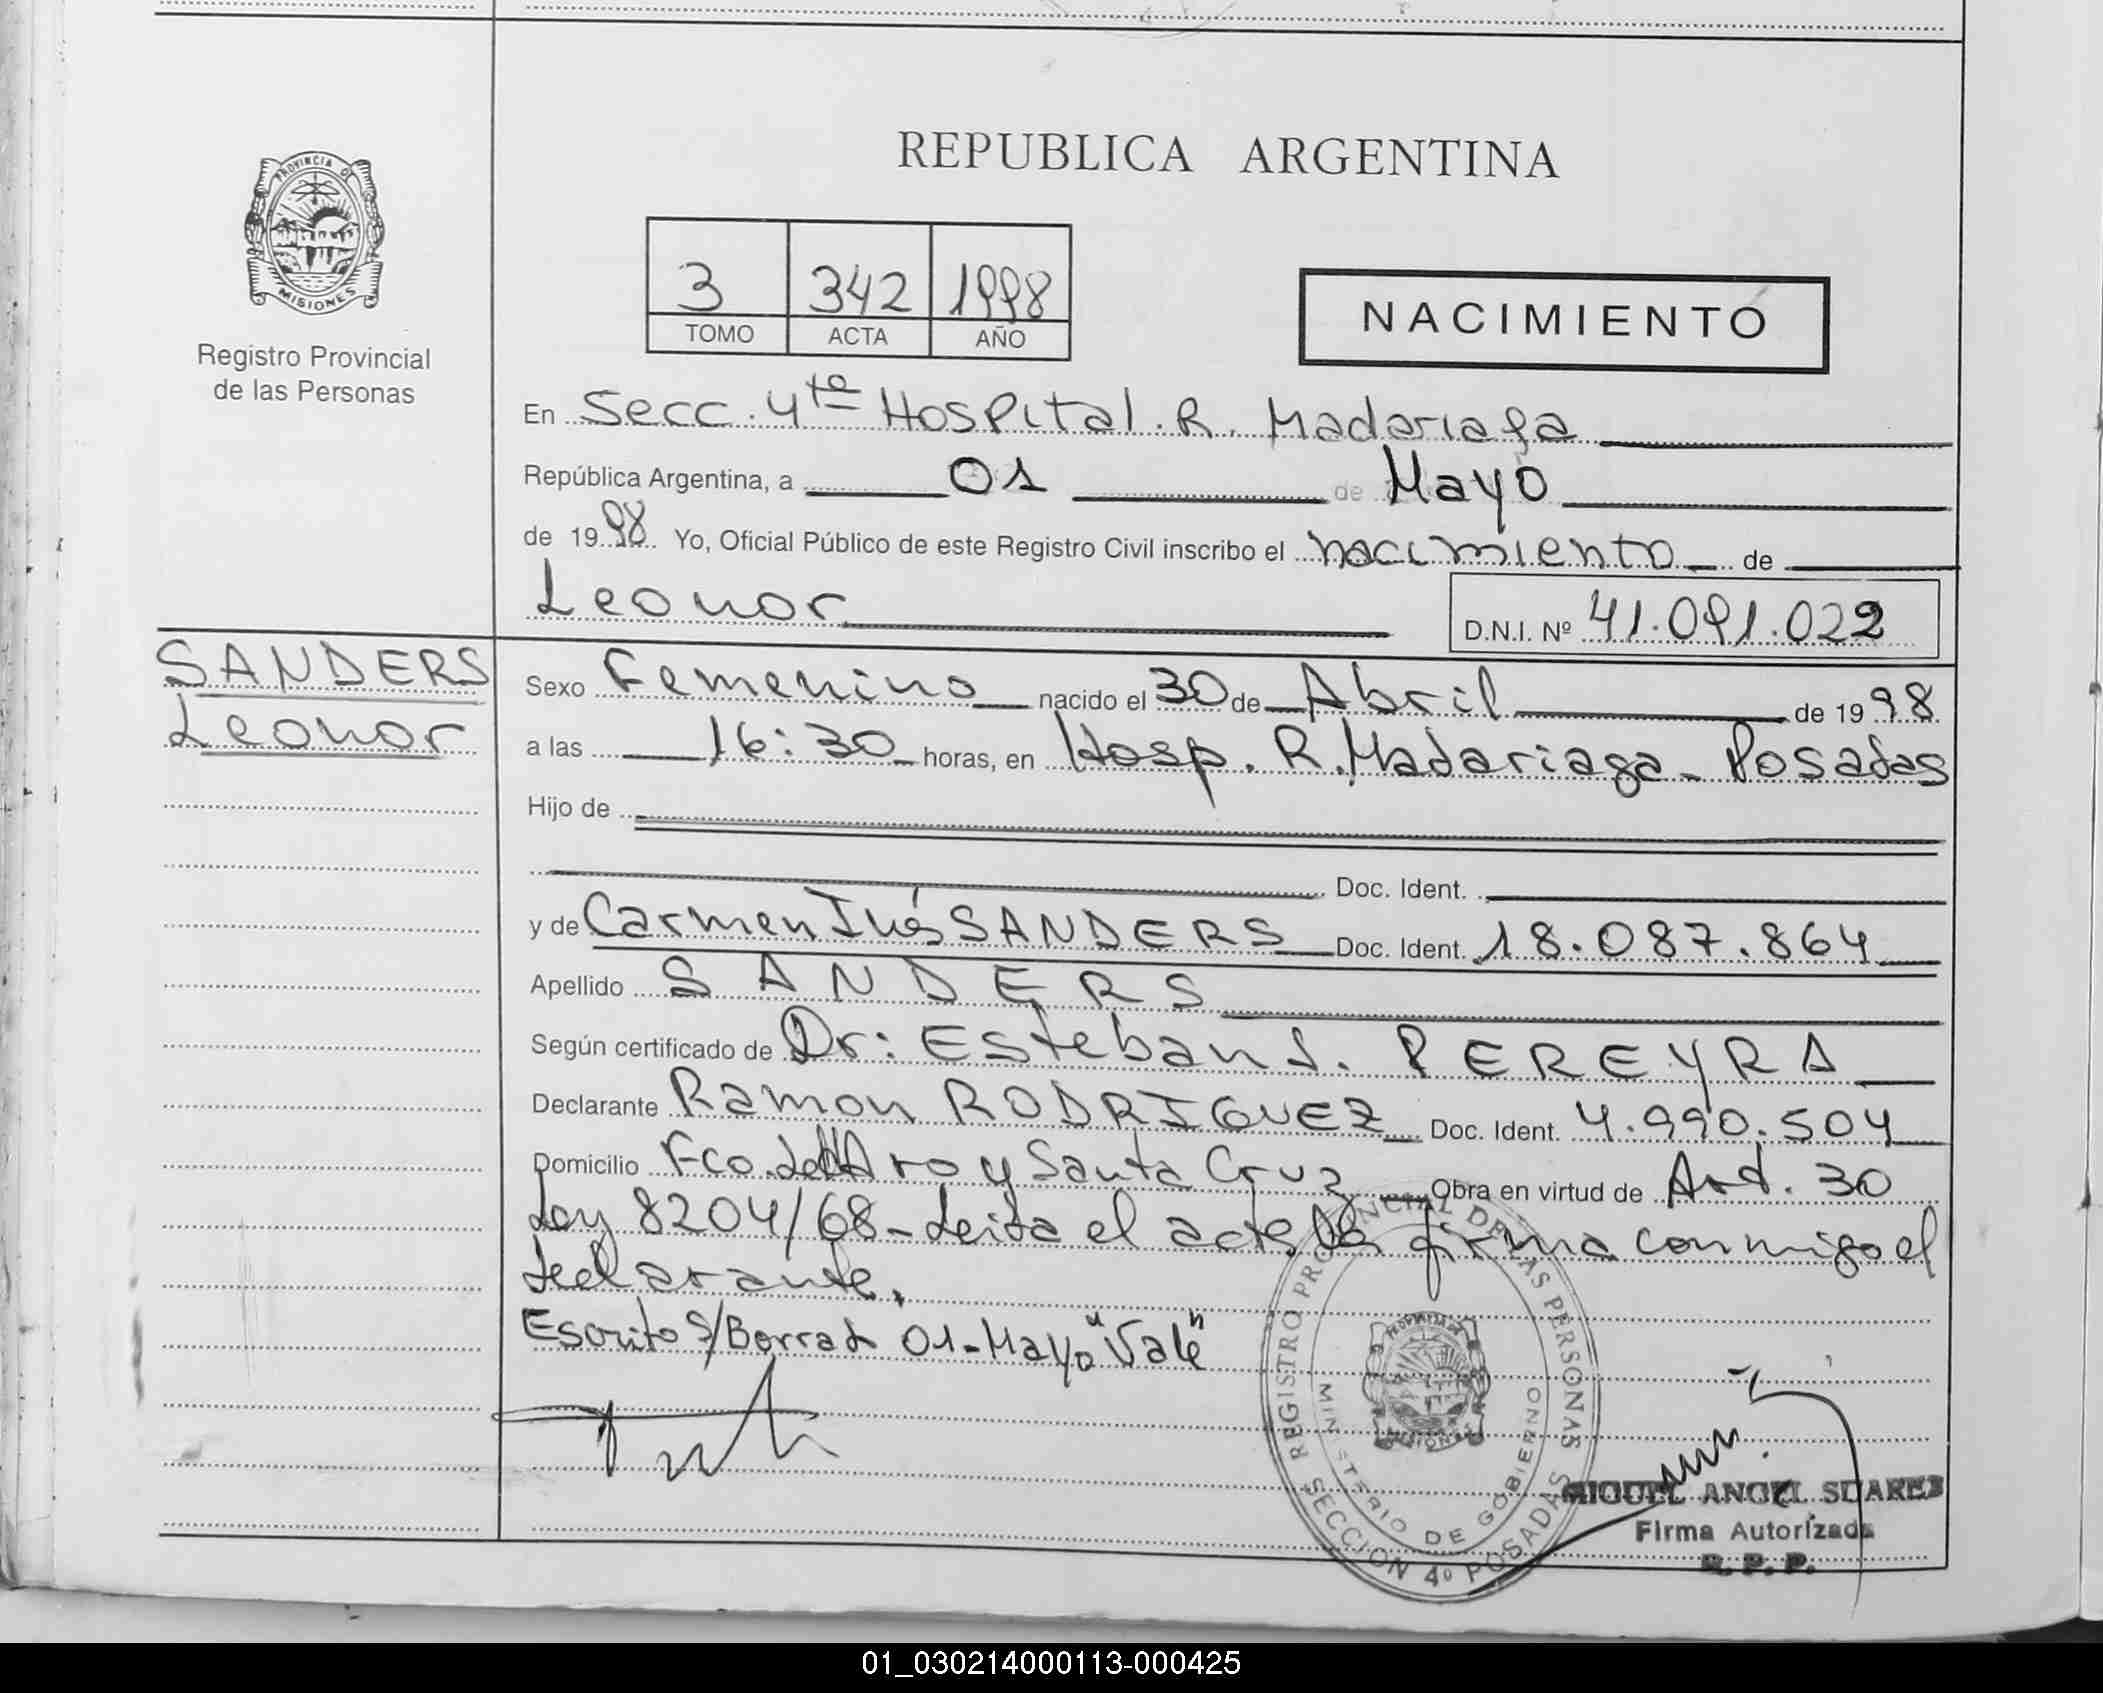 REPUBLICA ARGENTINA
PROVINCIA D
MISIONES
Registro Provincial
de las Personas
3 342 1998
TOMO ACTA AÑO
NACIMIENTO
En Secc. 4ta Hospital. R. Madariaga
República Argentina, a 01 de Mayo
de 1998 Yo, Oficial Público de este Registro Civil inscribo el nacimiento de
Leonor
D.N.I. Nº 41.091.022
SANDERS
Leonor
Sexo Femenino nacido el 30 de Abril de 1998
a las 16:30 horas, en Hosp. R. Madariaga - Posadas
Hijo de
Doc. Ident.
y de Carmen Inés SANDERS Doc. Ident. 18.087.864
Apellido SANDERS
Según certificado de Dr: Esteban S. PEREYRA
Declarante Ramon RODRIGUEZ Doc. Ident. 4.990.504
Domicilio Fco. de Haro y Santa Cruz Obra en virtud de Art. 30
Ley 8204/68 - Leida el acta la firma conmigo el
declarante.
Escrito s/Borrado 01-Mayo "Vale"
REGISTRO PROVINCIAL DE LAS PERSONAS
MINISTERIO DE GOBIERNO
SECCION 4º POSADAS
MIGUEL ANGEL SUAREZ
Firma Autorizada
R. P. P.
01_030214000113-000425